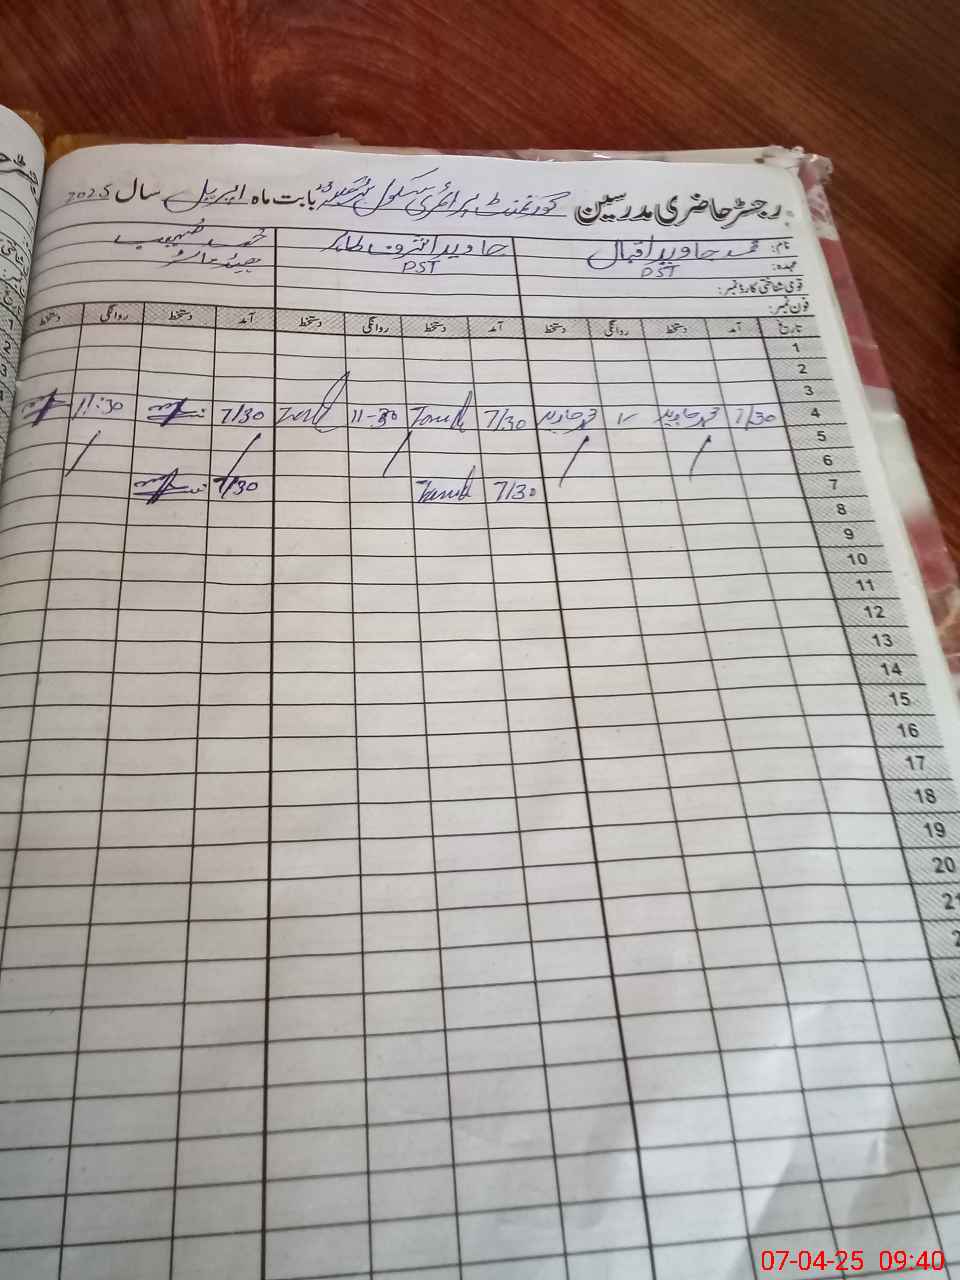 رجسٹر حاضری مدرسین گورنمنٹ پرائمری سکول بابت ماہ اپریل سال 2025
نام: محمد جاوید اقبال جاوید اشرف طاہر محمد شعیب
عہدہ: PST PST
قومی شناختی کارڈ نمبر:
فون نمبر:
تاریخ آمد دستخط روانگی دستخط آمد دستخط روانگی دستخط آمد دستخط روانگی دستخط
1
2
3
4 7/30 محمد جاوید 12 محمد جاوید 7/30 11-30 7/30 11:30
5
6
7 7/30 7/30
8
9
10
11
12
13
14
15
16
17
18
19
20
21
07-04-25 09:40